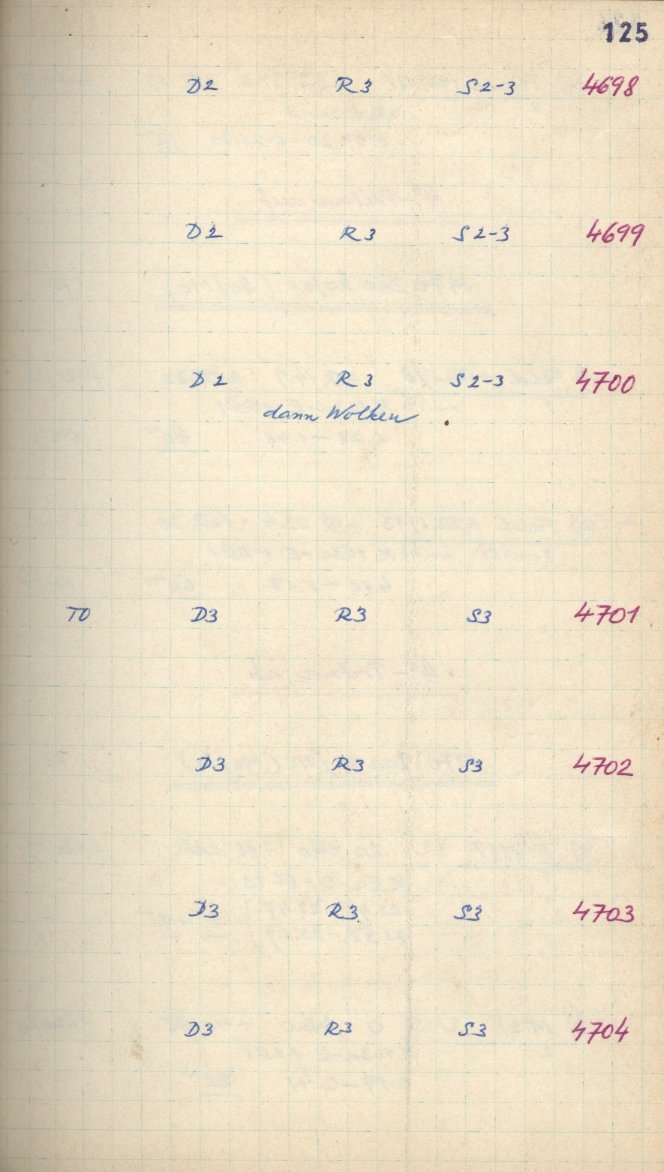 125
D2 R3 S2-3 4698
D2 R3 S2-3 4699
D2 R3 S2-3 4700
dann Wolken.
T0 D3 R3 S3 4701
D3 R3 S3 4702
D3 R3 S3 4703
D3 R3 S3 4704